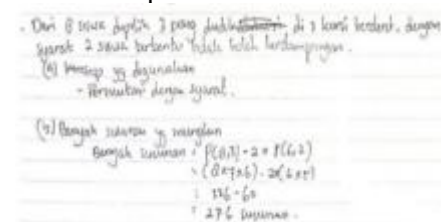 . Dari 8 siswa dipilih 3 yang duduk di 3 kursi berderet, dengan
syarat 2 siswa tertentu tidak boleh berdampingan.
(a) yg digunakan
- Permutasi dengan syarat.
(b) Banyak susunan yg mungkin
Banyak susunan = P(8,3) - 2 × P(6,2)
= (8×7×6) - 2×(6×5)
= 336 - 60
= 276 susunan.